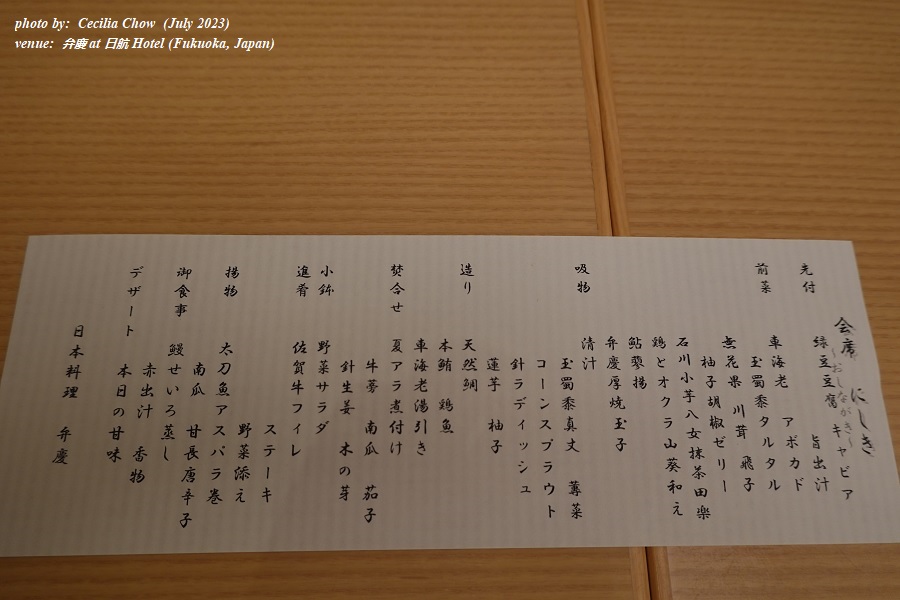 photo by: Cecilia Chow (July 2023)
venue: 弁慶 at 日航 Hotel (Fukuoka, Japan)
会席 にしき
～おしながき～
先付 緑豆豆腐 キャビア
旨出汁
前菜 車海老 アボカド
玉蜀黍タルタル 飛子
無花果 川茸
柚子胡椒ゼリー
石川小芋八女抹茶田楽
鶏とオクラ山葵和え
鮎蓼揚
弁慶厚焼玉子
吸物 清汁
玉蜀黍真丈 蓴菜
コーンスプラウト
針ラディッシュ
蓮芋 柚子
造り 天然鯛
本鮪 鶏魚
車海老湯引き
焚合せ 夏アラ煮付け
牛蒡 南瓜 茄子
針生姜 木の芽
小鉢 野菜サラダ
進肴 佐賀牛フィレ
ステーキ
野菜添え
揚物 太刀魚アスパラ巻
南瓜 甘長唐辛子
御食事 鰻せいろ蒸し
赤出汁 香物
デザート 本日の甘味
日本料理 弁慶